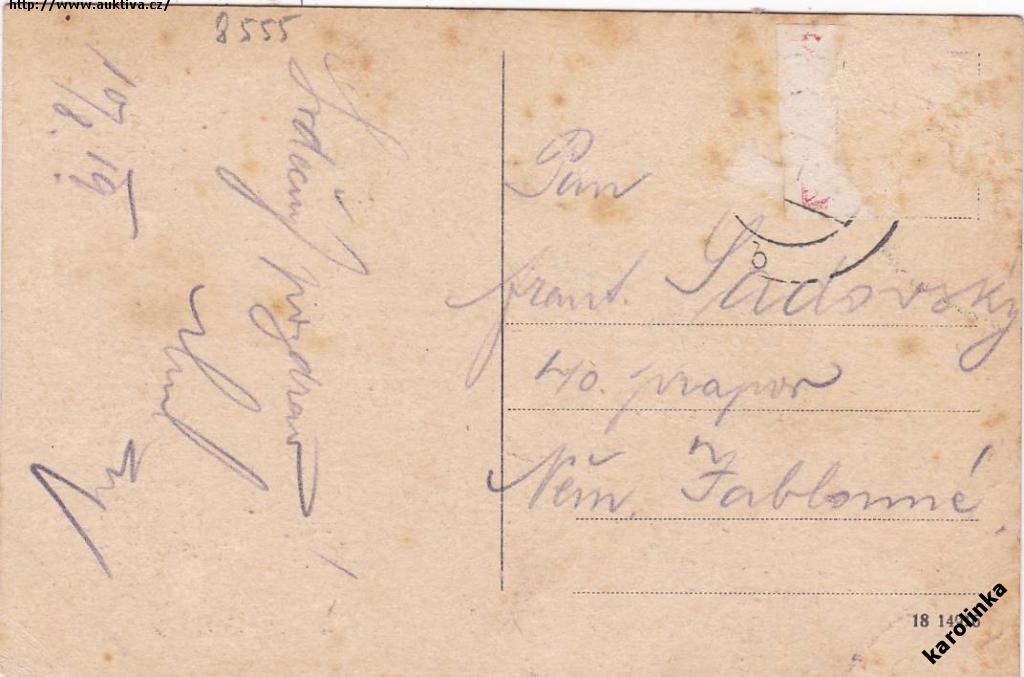 http://www.auktiva.cz/
8555
10/8. 19
Srdečný pozdrav
!
Pan
Frant. Sadovský
40. prapor
v
Něm. Jablonné.
18 149
karolinka